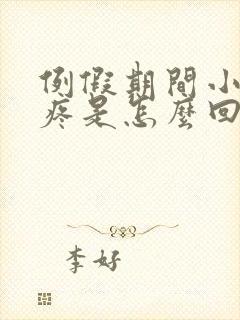 例假期間小
疼是怎麼回
李好